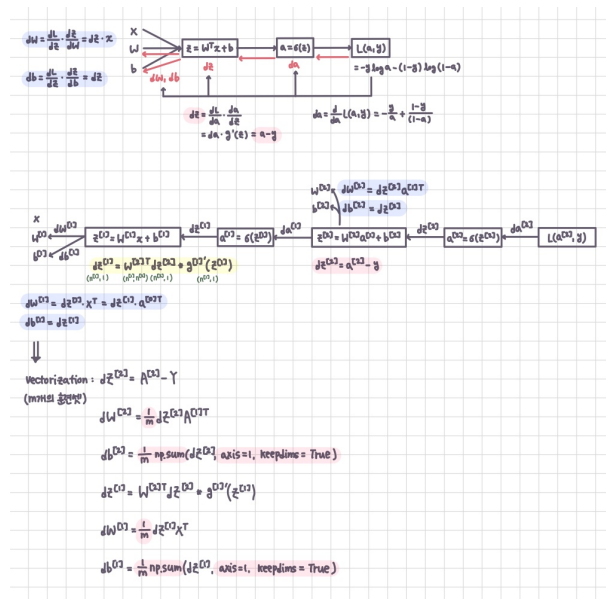 dw = dL/dz · dz/dw = dz · x
db = dL/dz · dz/db = dz
x
w
b
z = wᵀx+b
a=σ(z)
L(a,y)
= -y log a - (1-y) log (1-a)
dw, db
dz
da
dz = dL/da · da/dz
= da · g'(z) = a-y
da = d/da L(a,y) = -y/a + (1-y)/(1-a)
W[2] dW[2] = dz[2]a[1]T
b[2] db[2] = dz[2]
x
W[1] dW[1]
b[1] db[1]
z[1] = W[1]x + b[1]
dz[1]
a[1] = σ(z[1])
da[1]
z[2] = W[2]a[1] + b[2]
dz[2]
a[2] = σ(z[2])
da[2]
L(a[2], y)
dz[1] = W[2]T dz[2] * g[1]'(z[1])
dz[2] = a[2] - y
dW[1] = dz[1] · xᵀ = dz[1] · a[0]T
db[1] = dz[1]
Vectorization : dZ[2] = A[2] - Y
dW[2] = 1/m dZ[2]A[1]T
db[2] = 1/m np.sum(dZ[2], axis=1, keepdims = True)
dZ[1] = W[2]T dZ[2] * g[1]'(Z[1])
dW[1] = 1/m dZ[1]Xᵀ
db[1] = 1/m np.sum(dZ[1], axis=1, keepdims = True)